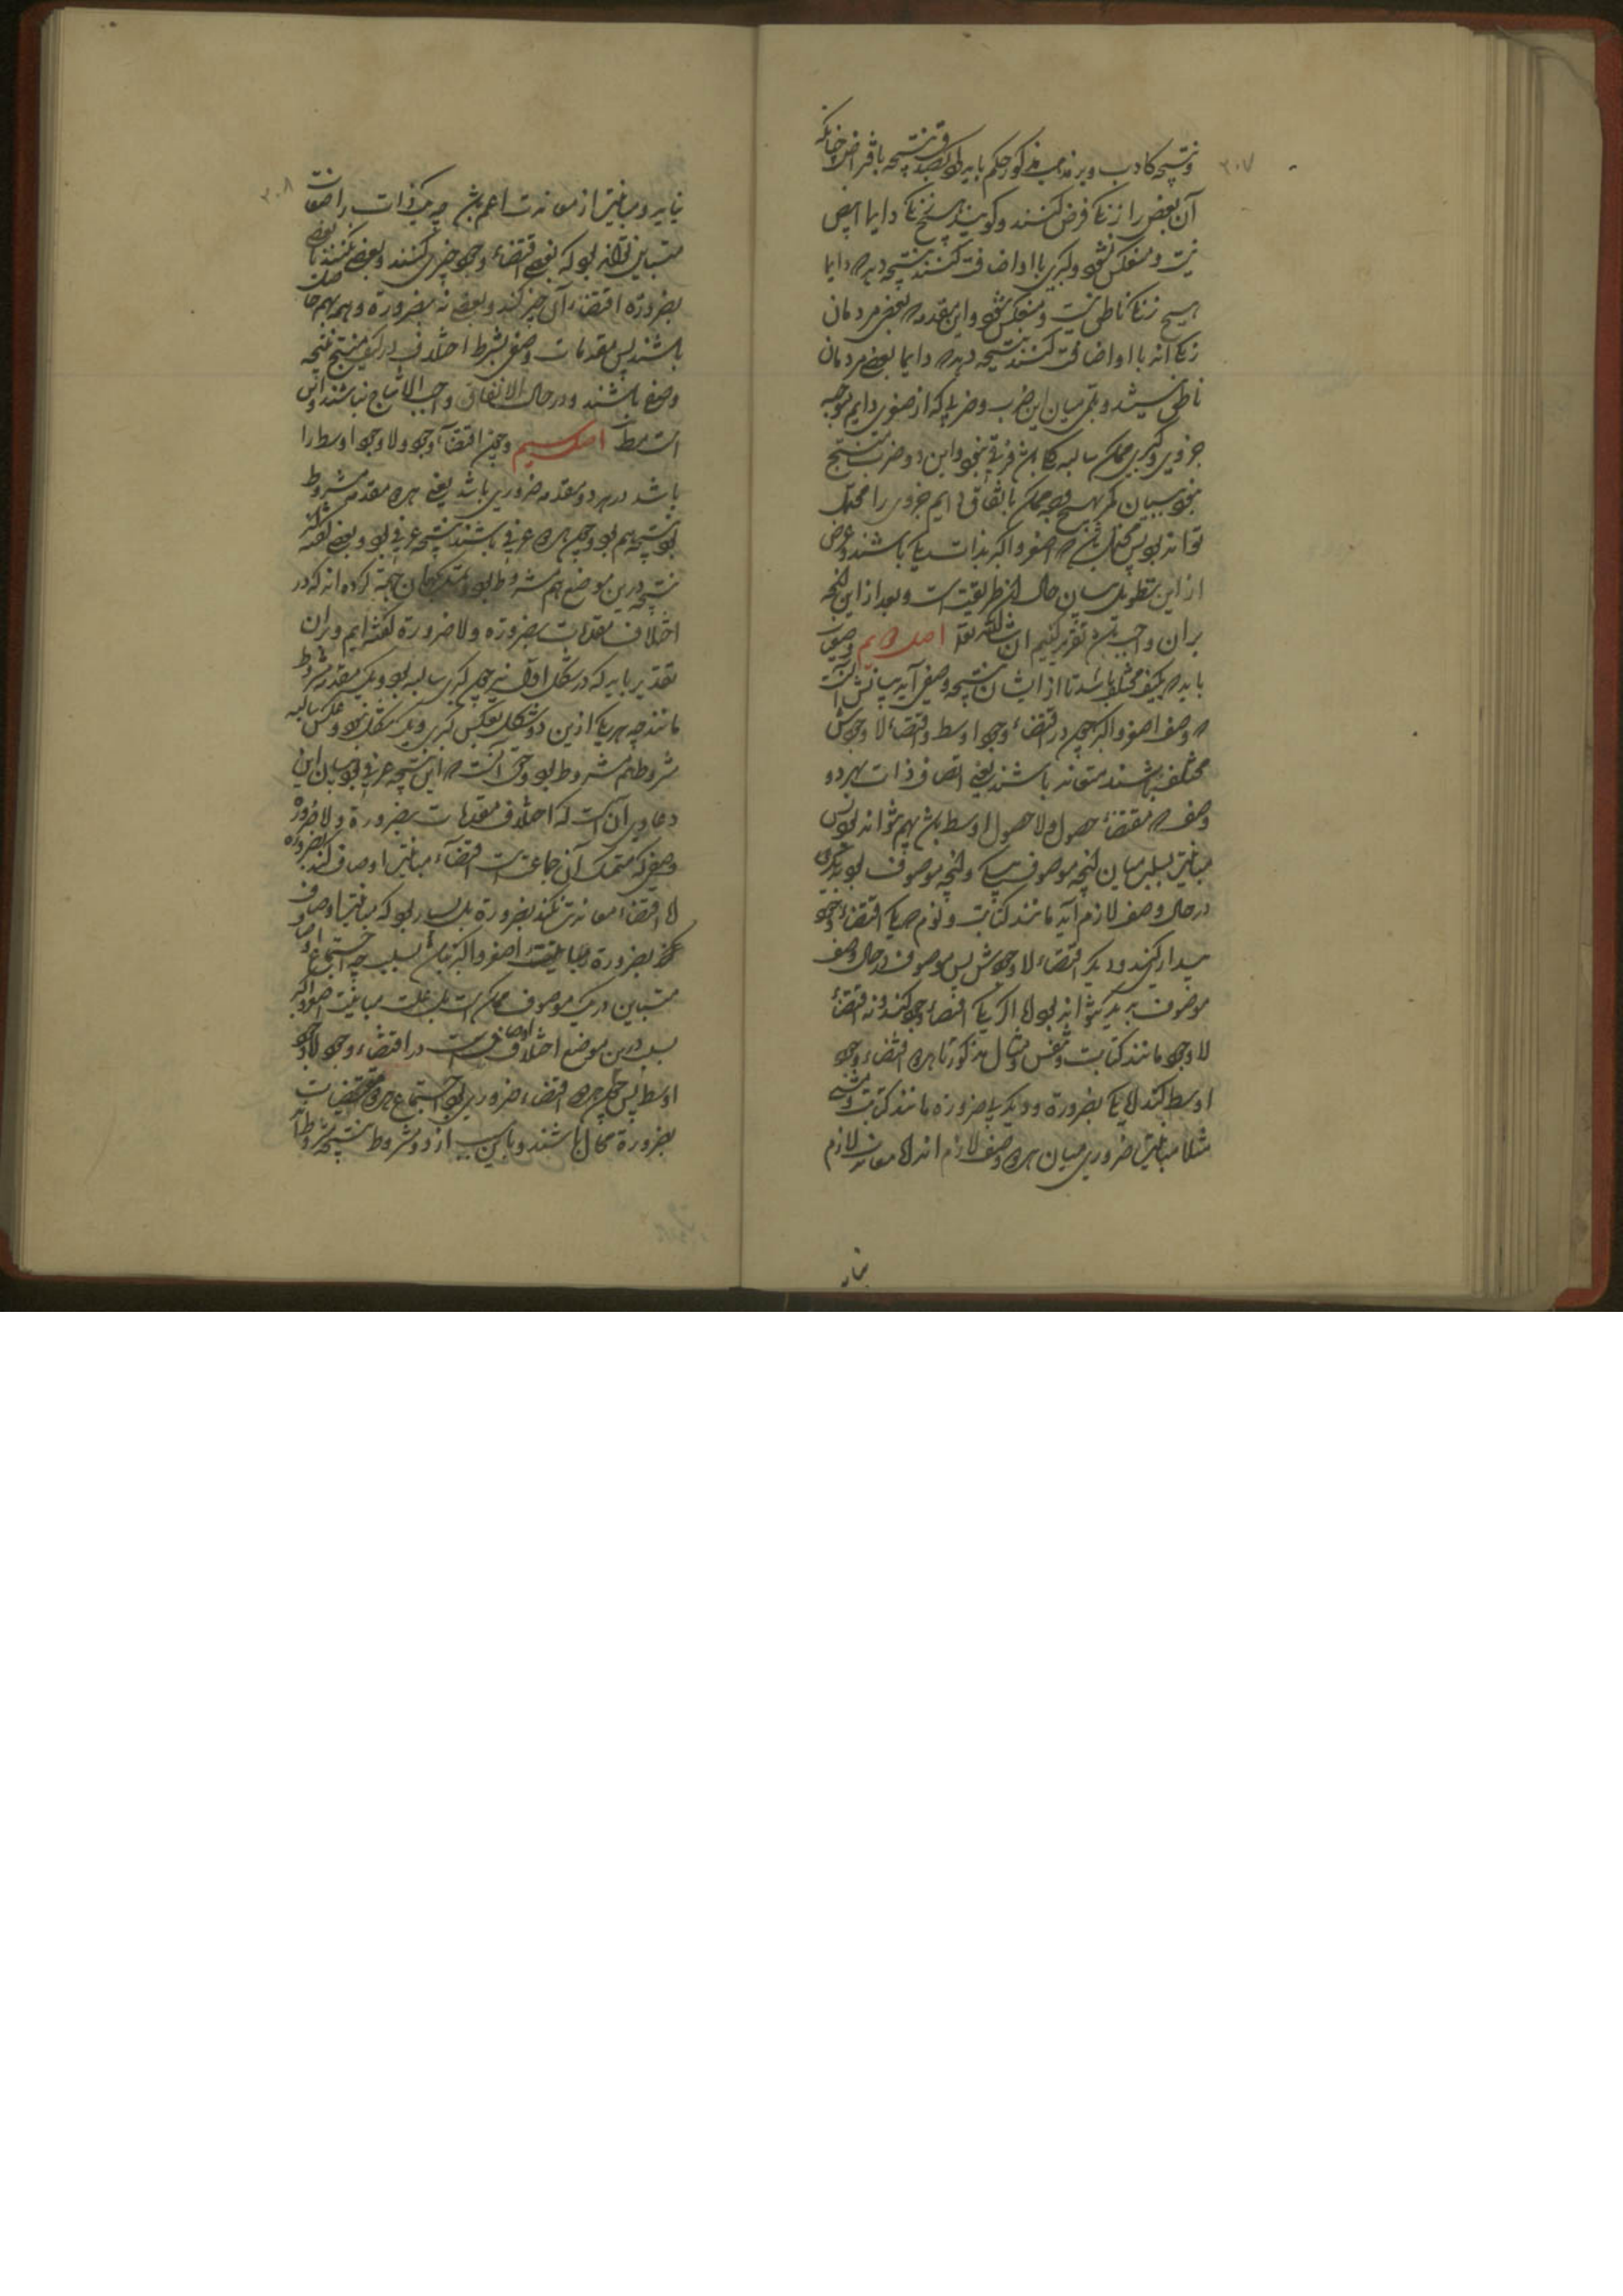 ۲۰۷
ونتیجه کاذب و بر مذهب مذکور حکم باید کرد بصدق نتیجه بافتراض چنانکه
آن بعض را زنکی فرض کنند و کویند هیچ زنکی دایما ابیض
نیست و منعکس شود و کبری با او اضافت کنند نتیجه دهد دایما
هیچ زنکی ناطق نیست و منعکس شود و این مقدمه که بعض مردمان
زنکی اند با او اضافت کنند نتیجه دهد که دایما بعضی مردمان
ناطق نیستند و میان این ضرب و ضربی که از صغری دایم موجبه
جزوی و کبری ممکن سالبه کلی باشد فرقی نبود و این دو ضرب منتج
نبود بیان هیچ وجه ممکن باتفاق دایم جزوی را محتمل
تواند بود پس محتمل باشد که اصغر و اکبر بذات یکی باشند و غرض
از این تطویل بیان حال این طریقت است و بعد از این آنچه
بران واجب باشد تقریر کنیم ان شاء الله تعالی اصل دویم وصفیات
باید که بکیف مختلف باشد تا از ایشان نتیجه وصفی آید بیانش آنست
که وصف اصغر و اکبر چون در اقتضاء وجود اوسط و اقتضاء لا وجودش
مختلف باشند متعاند باشند یعنی اتصاف ذات بهر دو
وصف که مقتضاء حصول و لا حصول اوسط باشد بهم نتواند بود پس
مباینتی بسلب میان آنچه موصوف بیکی و آنچه موصوف بود بدیکری
در حال وصف لازم آید مانند کتابت و نوم که یکی اقتضاء وجود
بیداری کند و دیکر اقتضاء لا وجودش پس موصوف در حال وصف
موصوف بدیکر نتواند بود اما اکر یکی اقتضاء وجود کند و نه اقتضاء
لا وجود مانند کتابت و تنفس و مثال مذکور تا هر دو اقتضاء وجود
اوسط کند لکن یکی بضرورة و دیکر بلا ضرورة مانند کتابت و مشی
مثلا مباینتی ضروری میان هر دو وصف لازم اند اما معاندت لازم
نیاید
۲۰۸
نیاید و مباینتی از معاندت اعم باشد چه یک ذات را صفات
متباین تواند بود که بعضی اقتضاء وجود چیزی کنند و بعضی نکنند یا بعضی
بضرورة اقتضاء آن چیز کند و بعضی نه بضرورة و همه بهم حاصل
باشند پس مقدمات وصفی بشرط اختلاف در کیف منتج نتیجه
وصفی باشند و در حال الاتفاق واجب الانتاج نباشند و این
است مطلوب اصل سیم و چون اقتضاء وجود و لا وجود اوسط را
باشد در هر دو مقدمه ضروری باشد یعنی هر دو مقدمه مشروط
بود نتیجه هم بود و چون هر دو عرفی باشند نتیجه عرفی بود و بعضی کفته
نتیجه درین موضع هم مشروط بود کرده اند که در
اختلاف مقدمات بضرورة و لا ضرورة کفته ایم و بران
تقدیر باید که در شکل اول نیز چون کبری سالبه بود و یک مقدمه مشروط
مانند چه هر یکی ازین دو شکل بعکس کبری و یکدیکر نقل شود و عکس سالبه
مشروط هم مشروط بود و حق آنست که این نتیجه عرفی بود بیان این
دعاوی آن است که اختلاف مقدمات بضرورة و لا ضرورة
وصفی که متمسک آن جماعت است اقتضاء مباینتی اوصاف کند بضرورة
اما اقتضاء معاندت نکند بضرورة بل بسیار بود که مباینتی اوصاف
بضرورة و مباینت اصغر و اکبر نباشد بسلب چه اجتماع اوصاف
متباین در یک موصوف ممکن است بل علت مباینت اصغر و اکبر
بسلب درین موضع اختلاف اوصاف است در اقتضاء وجود و لا وجود
اوسط پس چون هر دو اقتضاء ضروری بود اجتماع هر دو مقتضیات
بضرورة محال باشند و باین سبب از دو مشروط نتیجه مشروط آید